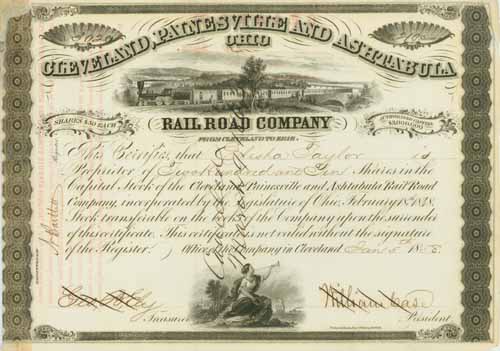 CLEVELAND, PAINESVILLE AND ASHTABULA
OHIO
RAIL ROAD COMPANY
FROM CLEVELAND TO ERIE.
SHARES $50 EACH
$3,000,000
This Certifies that Elisha Taylor is
Proprietor of Two hundred and Ten Shares in the
Capital Stock of the Cleveland Painesville and Ashtabula Rail Road
Company, incorporated by the Legislature of Ohio, February 18, 1848.
Stock transferable on the books of the Company upon the surrender
of this certificate. This certificate is not valid without the signature
of the Register. Office of the Company in Cleveland Jan 5th 18
Treasurer
William Case
President